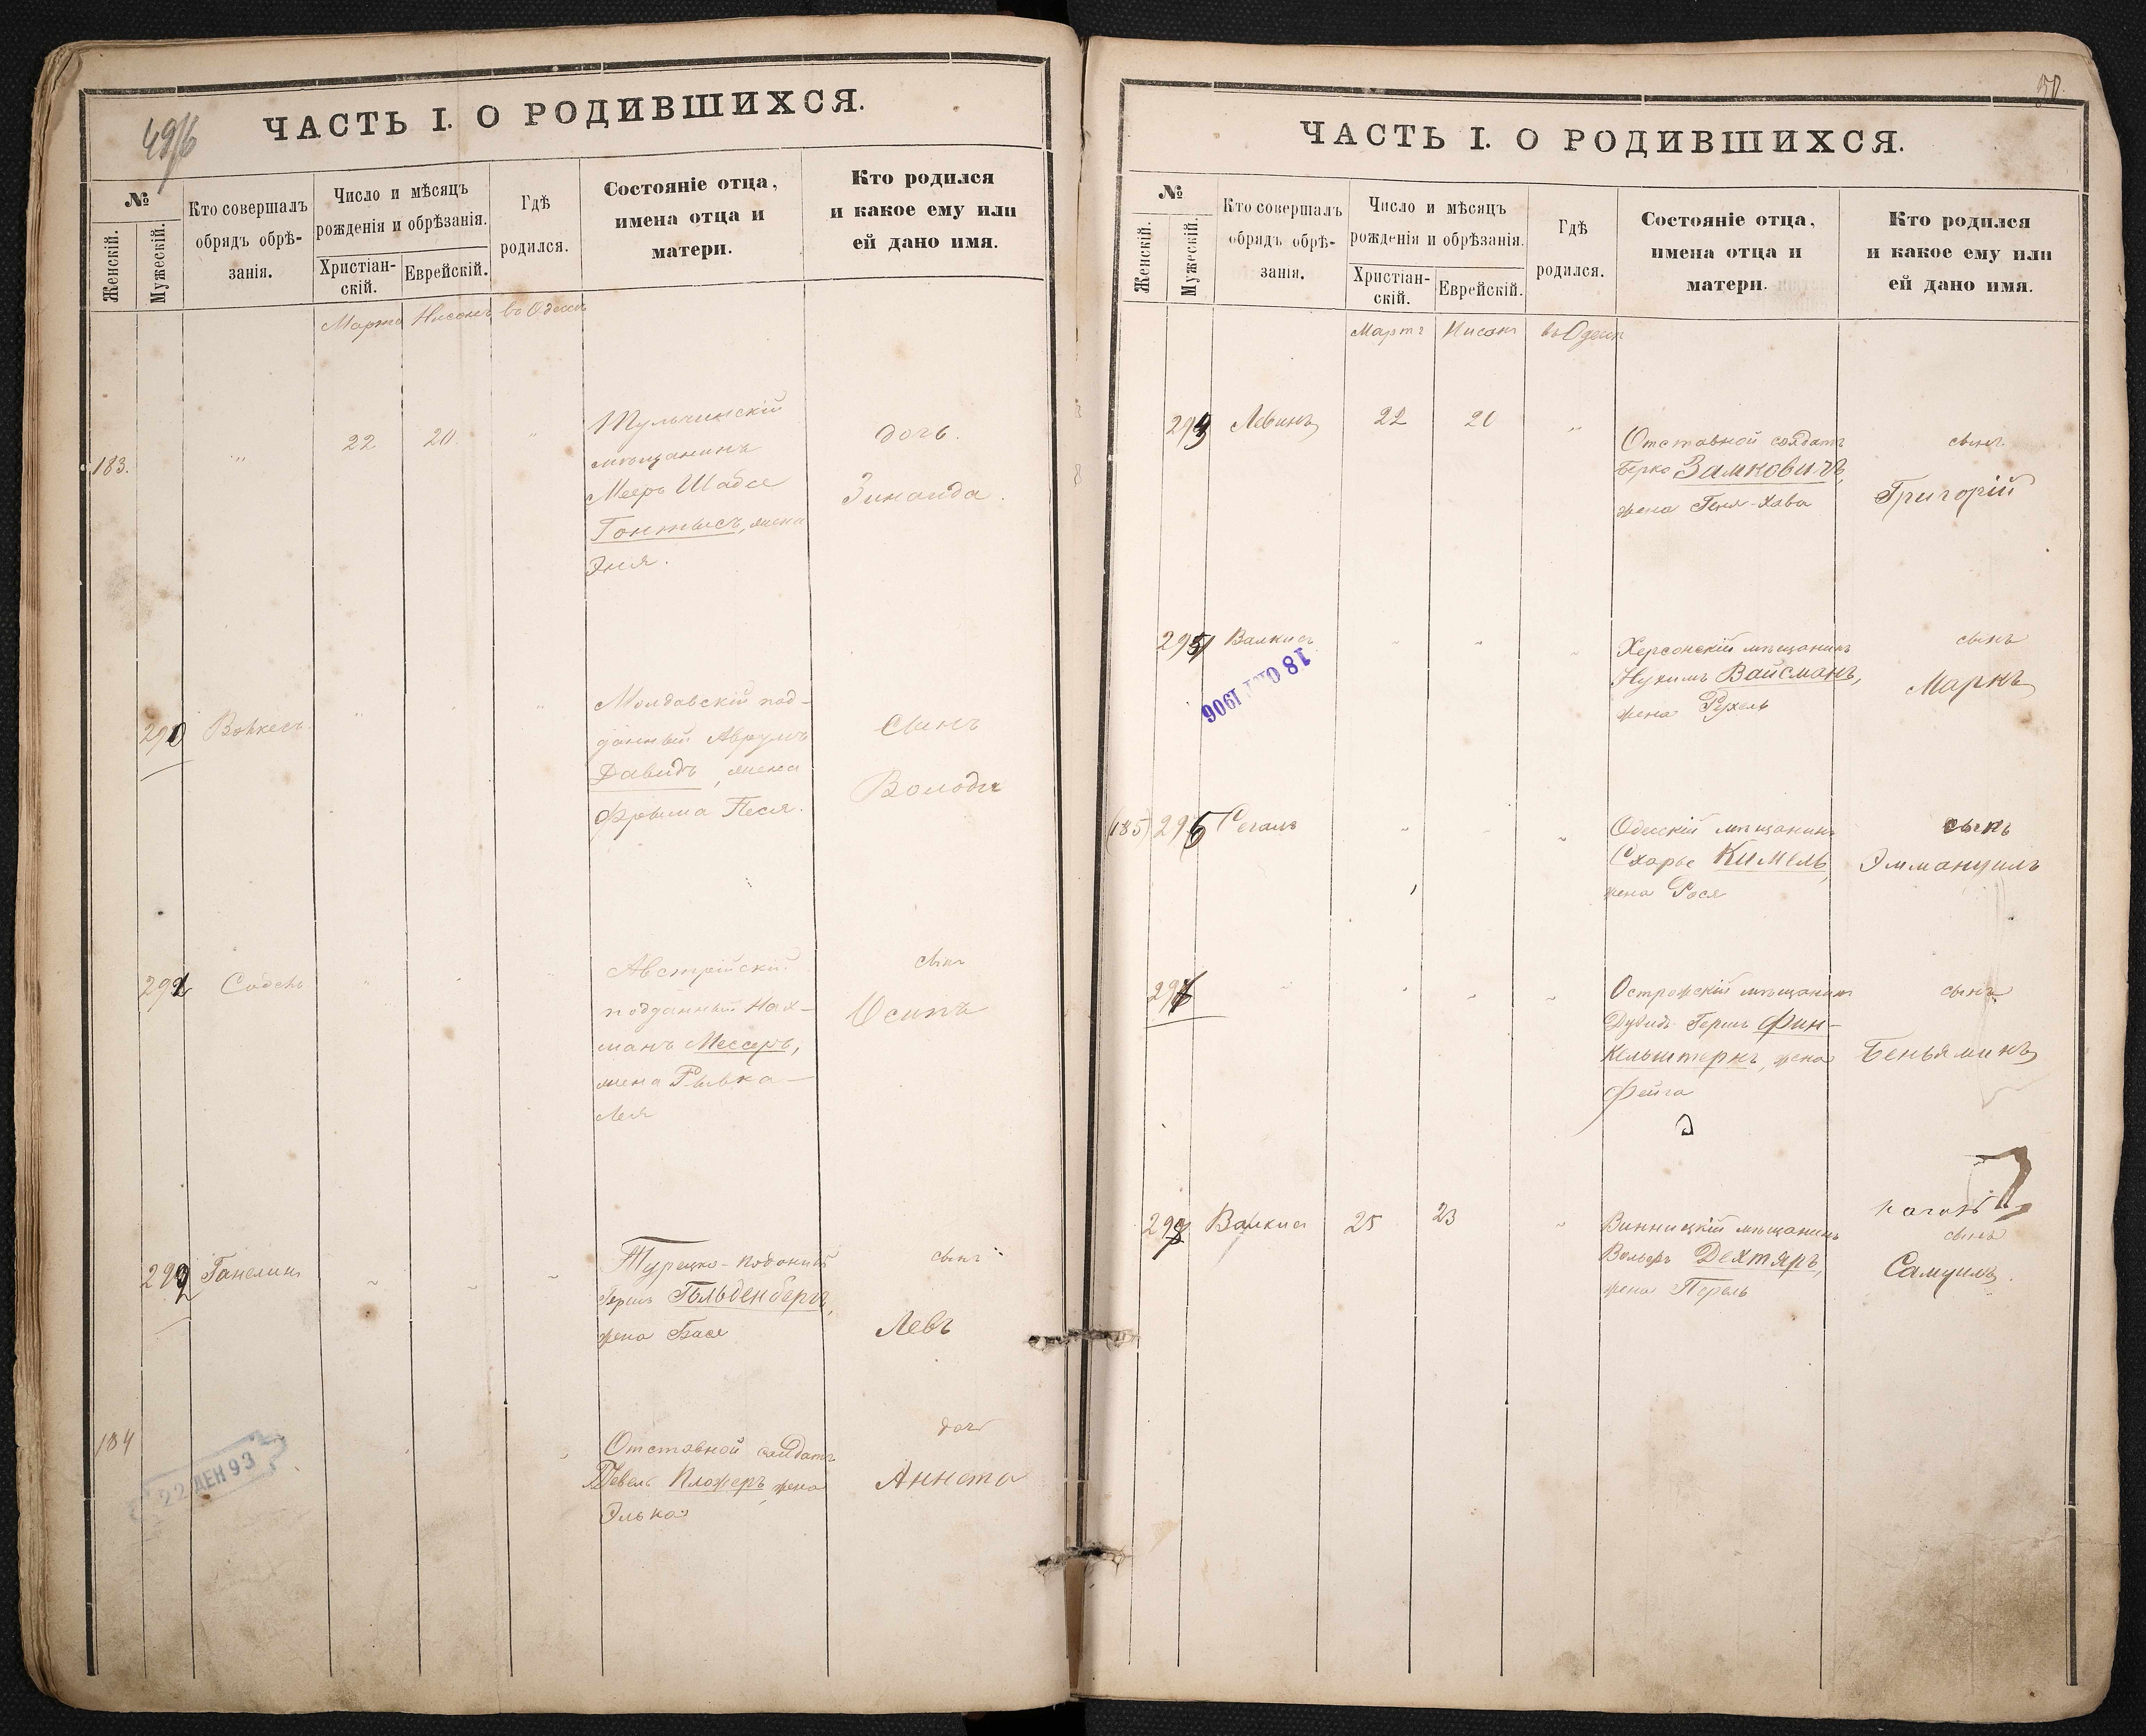 ЧАСТЬ I. О РОДИВШИХСЯ.
№
Женскій.
Мужескій.
Кто совершалъ
обрядъ обрѣ-
занія.
Число и мѣсяцъ
рожденія и обрѣзанія.
Христіан-
скій.
Еврейскій.
Гдѣ
родился.
Состояніе отца,
имена отца и
матери.
Кто родился
и какое ему или
ей дано имя.
Марта Нисонъ въ Одессѣ
183. " 22 20. "
Тульчинскій
мѣщанинъ
Мееръ Шабсе
Гонтысъ, жена
Эня.
дочь.
Зинаида.
290
Молдавскій под-
данный Аврумъ
Давидъ, жена
Фрыма Песя.
сынъ
Володя
291
Австрійскій
подданный Нах-
манъ Мессеръ,
жена Рывка-
Лея
сынъ
Осипъ
292 Ганелинъ
Турецко-подданый
Гершъ Гольденбергъ,
жена Бася
сынъ
Левъ
184
22 ДЕН 93
Отставной солдатъ
Тевель Пложеръ, жена
Элька
дочь
Аннета
50
ЧАСТЬ I. О РОДИВШИХСЯ.
№
Женскій.
Мужескій.
Кто совершалъ
обрядъ обрѣ-
занія.
Число и мѣсяцъ
рожденія и обрѣзанія.
Христіан-
скій.
Еврейскій.
Гдѣ
родился.
Состояніе отца,
имена отца и
матери.
Кто родился
и какое ему или
ей дано имя.
Мартъ Нисонъ въ Одессѣ
Левинъ 22 20 "
Отставной солдатъ
Берко Замковичъ,
жена Геня-Хава
сынъ
Григорій
295 Валкисъ
1906
Херсонскій мѣщанинъ
Нухимъ Вайсманъ,
жена Рухель
сынъ
Маркъ
(185) 296 Сегалъ
Одесскій мѣщанинъ
Схарье Кимель,
жена Рося
сынъ
Эммануилъ
297
Острожскій мѣщанинъ
Дувидъ Гершъ Фин-
кельштернъ, жена
Фейга
сынъ
Беньяминъ
298 Валкисъ 25 23
Винницкій мѣщанинъ
Вольфъ Дехтяръ,
жена Перель
сынъ
Самуилъ.